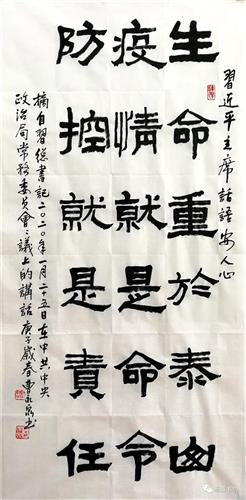 習近平主席話語安人心
生命重於泰山
疫情就是命令
防控就是責任
摘自習總書記二〇二〇年一月二十五日在中共中央
政治局常務委員會〻議上的講話 庚子歲春曹書